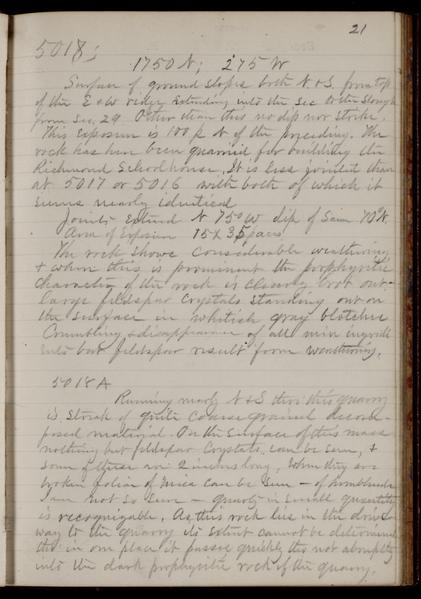 21
5018;
1750 N; 275 W
Surface of ground slopes both N. & S. from top
of the E & W ridge extending into the sec to the Slough
from Sec. 29 Other than this no dip nor strike.
This exposure is 100 p N of the preceding. The
rock has been quarried for building the
Richmond School house. It is less jointed than
at 5017 or 5016 with both of which it
seems nearly identical
Joints Extend N 75° W dip of Same 70° N
Area of Exposure 15 X 35 paces
The rock shows considerable weathering,
& when this is prominent the porphyritic
character of the rock is clearly brot out,
large feldspar crystals standing out on
the surface in whitish gray blotches
Crumbling & disappearance of all min
into but feldspar result from weathering.
5018 A
Running nearly N & S thro' this quarry
is streak of quite coarse grained decom-
posed material. On the surface of this mass
nothing but feldspar crystals can be seen, &
some of these are 2 inches long, When they are
broken folia of mica can be seen — of hornblende
I am not so sure — quartz in small quantity
is recognizable. As this rock lies in the drive-
way to the quarry its extent cannot be determined
tho' in one place it passes quickly tho not abruptly
into the dark porphyritic rock of the quarry.